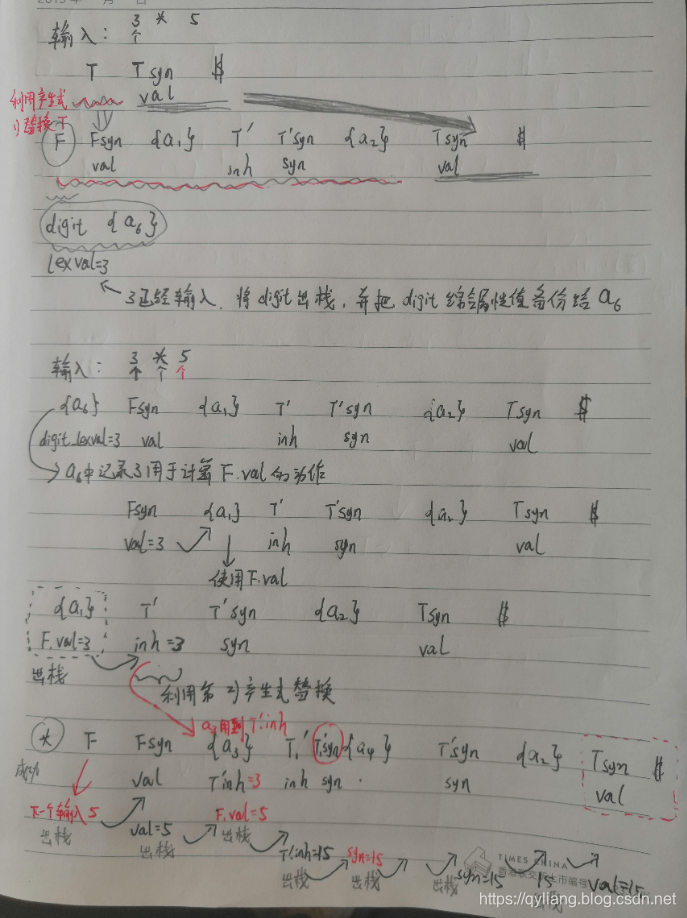 输入： 3 * 5
个
T Tsyn $
利用产生式 val
1)替换T
F Fsyn {a₁} T' T'syn {a₂} Tsyn $
val inh syn val
digit {a₆}
lexval=3
3已经输入．将digit出栈，并把digit综合属性值备份给a₆
输入： 3 * 5
个 个 个
{a₆} Fsyn {a₁} T' T'syn {a₂} Tsyn $
digit_lexval=3 val inh syn val
a₆中记录3用于计算F.val的动作
Fsyn {a₁} T' T'syn {a₂} Tsyn $
val=3 inh syn val
使用F.val
{a₁} T' T'syn {a₂} Tsyn $
F.val=3 inh=3 syn val
出栈
利用第2)产生式替换
用到T'.inh
* F Fsyn {a₃} T₁' T₁'syn {a₄} T'syn {a₂} Tsyn $
成功 val T'inh=3 inh syn syn val
下一个输入5 F.val=5
出栈 val=5 出栈
出栈 T'.inh=15 syn=15 TIMES CHINA
出栈 出栈 出栈 syn=15 15 val=15
出栈
https://qyliang.blog.csdn.net